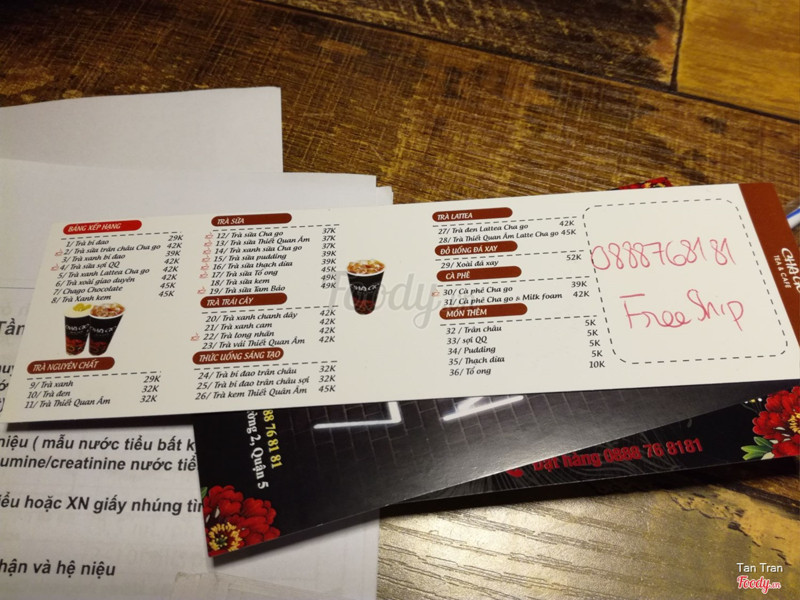 BẢNG XẾP HẠNG
1/ Trà bí đao 29K
2/ Trà sữa trân châu Cha go 42K
3/ Trà xanh bí đao 39K
4/ Trà sữa sợi QQ 42K
5/ Trà xanh Lattea Cha go 42K
6/ Trà xoài giao duyên 42K
7/ Chago Chocolate 45K
8/ Trà Xanh kem
TRÀ NGUYÊN CHẤT
9/ Trà xanh 29K
10/ Trà đen 32K
11/ Trà Thiết Quan Âm 32K
TRÀ SỮA
12/ Trà sữa Cha go 37K
13/ Trà sữa Thiết Quan Âm 37K
14/ Trà xanh sữa Cha go 37K
15/ Trà sữa pudding 39K
16/ Trà sữa thạch dừa 39K
17/ Trà sữa Tổ ong 45K
18/ Trà sữa kem 49K
19/ Trà sữa Tam Bảo 49K
TRÀ TRÁI CÂY
20/ Trà xanh chanh dây 42K
21/ Trà xanh cam 42K
22/ Trà long nhãn 42K
23/ Trà vải Thiết Quan Âm 42K
THỨC UỐNG SÁNG TẠO
24/ Trà bí đao trân châu 32K
25/ Trà bí đao trân châu sợi 32K
26/ Trà kem Thiết Quan Âm 45K
TRÀ LATTEA
27/ Trà đen Lattea Cha go 42K
28/ Trà Thiết Quan Âm Latte Cha go 45K
ĐỒ UỐNG ĐÁ XAY
29/ Xoài đá xay 52K
CÀ PHÊ
30/ Cà phê Cha go 39K
31/ Cà phê Cha go & Milk foam 42K
MÓN THÊM
32/ Trân châu 5K
33/ sợi QQ 5K
34/ Pudding 5K
35/ Thạch dừa 5K
36/ Tổ ong 10K
0888768181
Free Ship
TEA & CAFE
88 76 81 81
ường 2, Quận 5
Đặt hàng 0888 76 8181
iệu ( mẫu nước tiểu bất k
umine/creatinine nước tiể
iểu hoặc XN giấy nhúng tìn
hận và hệ niệu
Foody
Tan Tran
Foody.vn